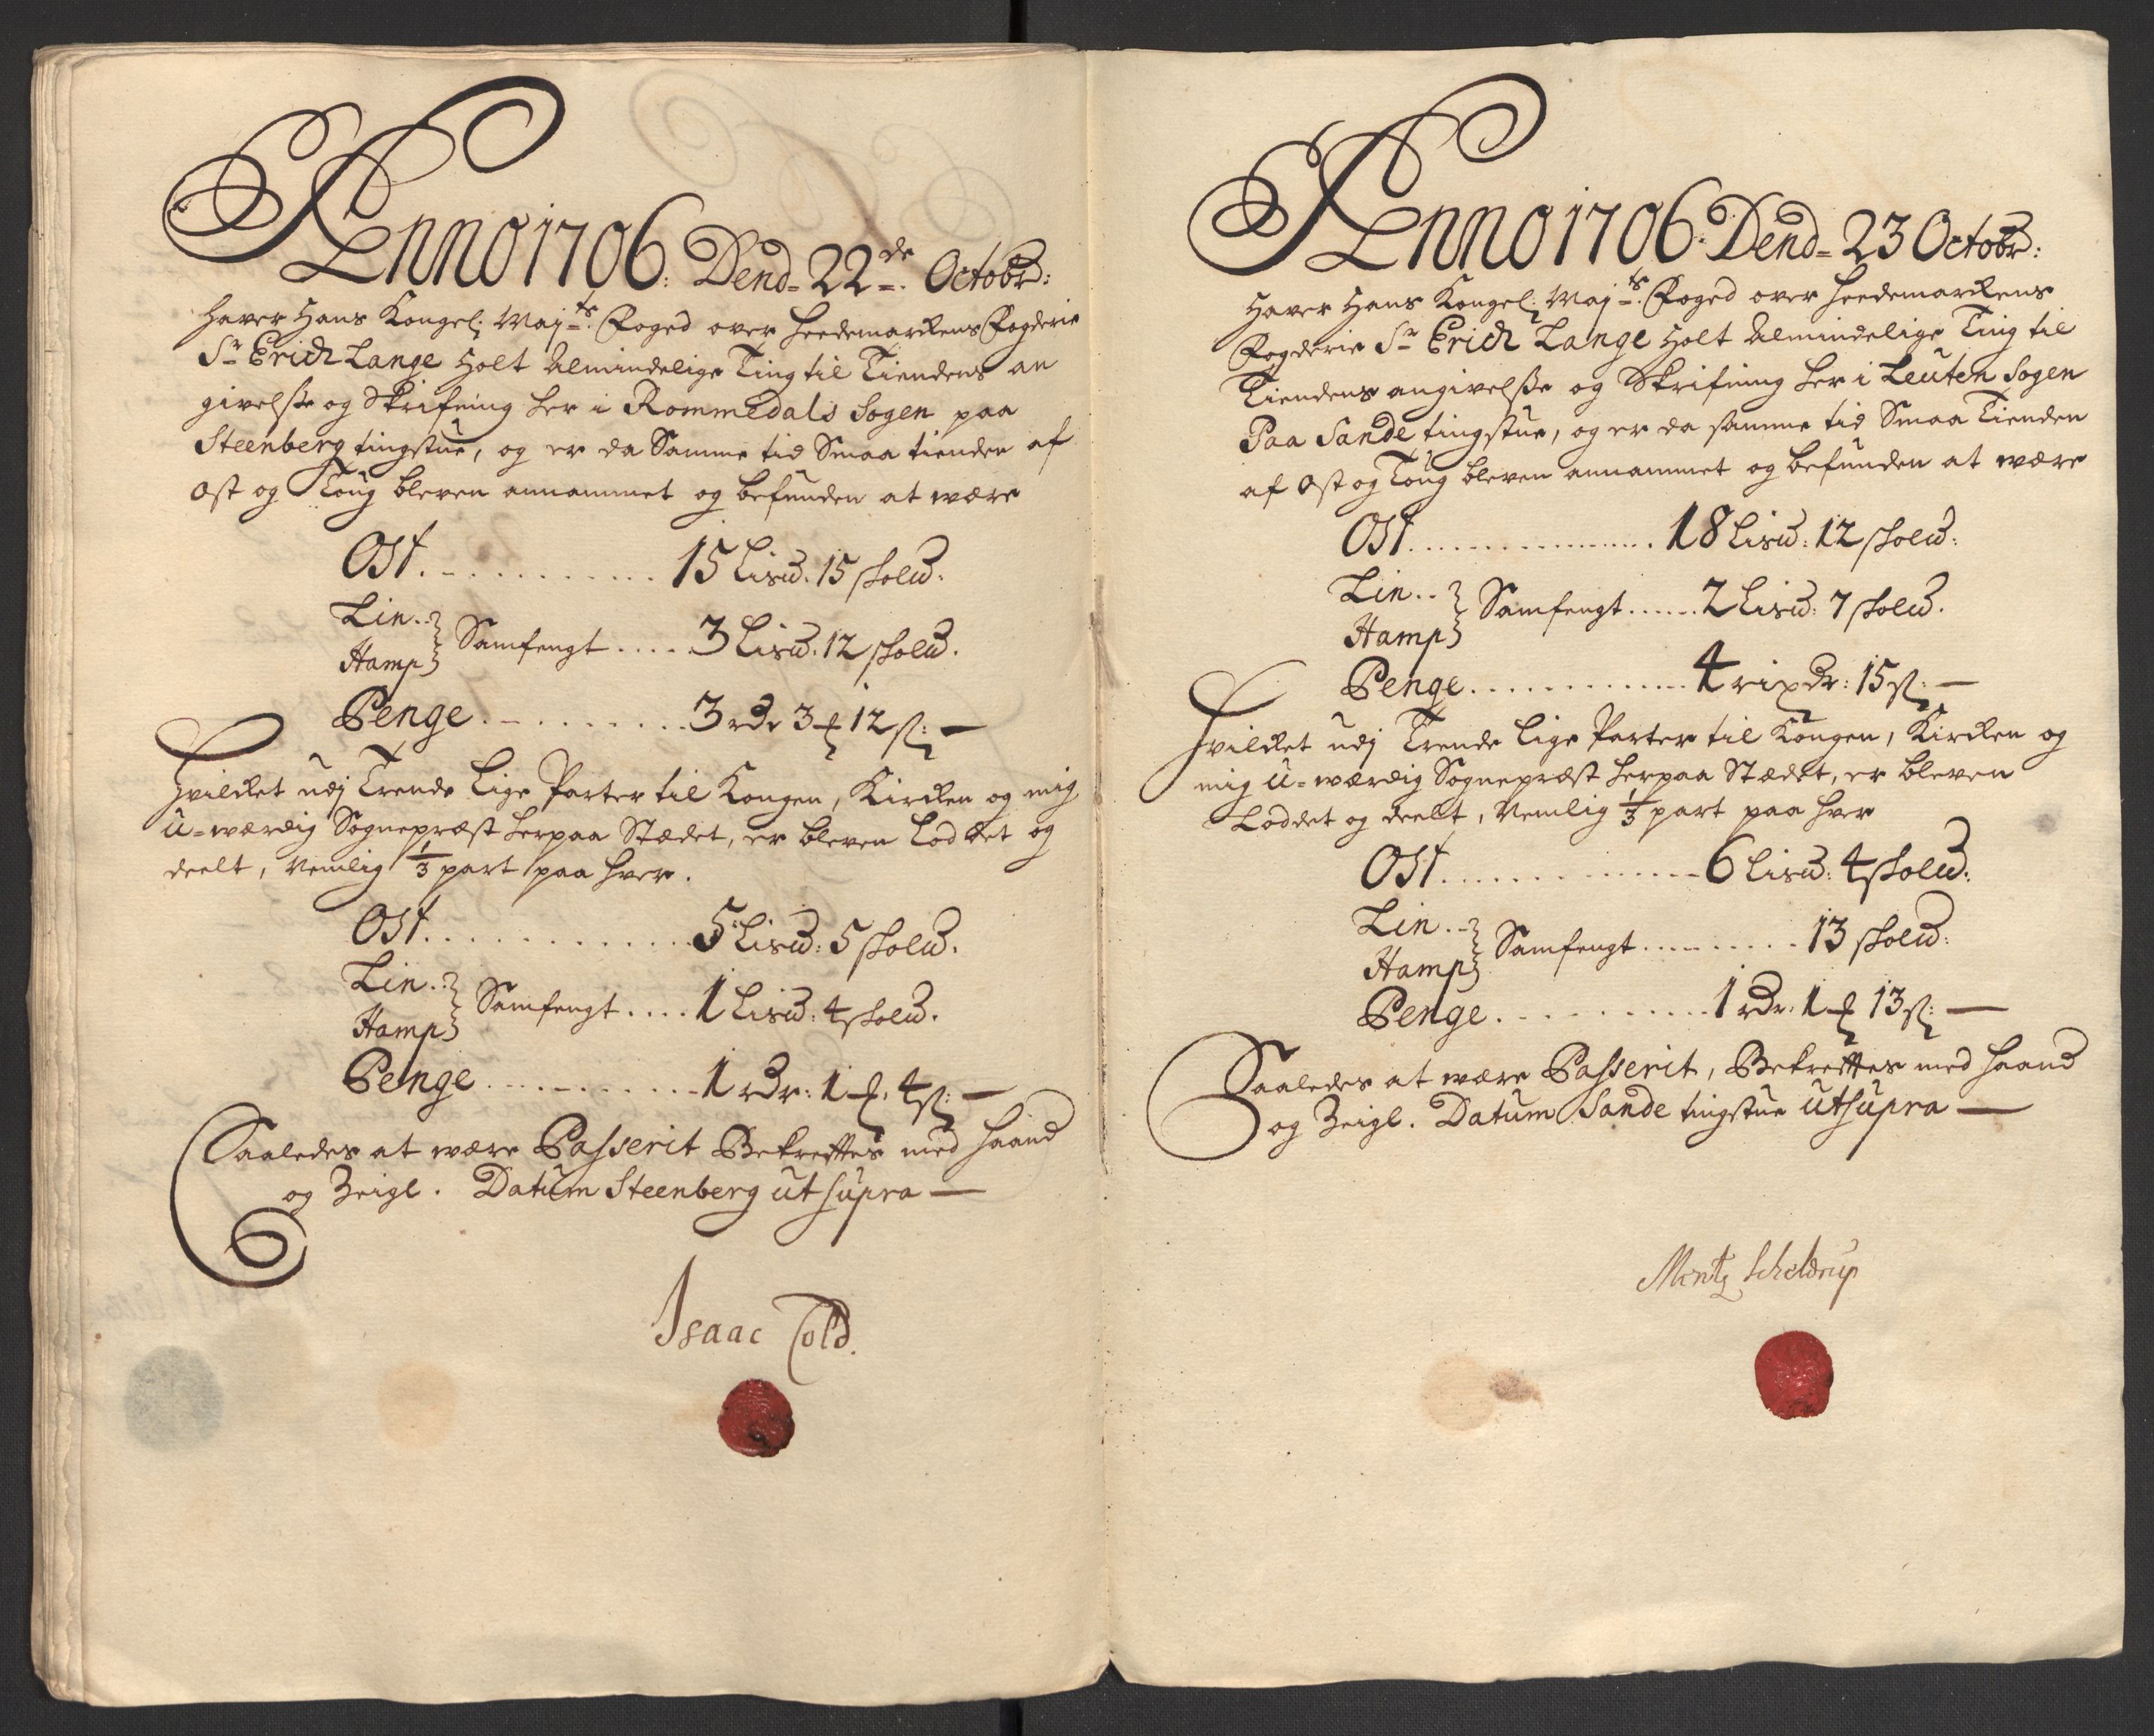 Anno 1706: Dend= 22de. Octobr:
Haver Hans Kongel: Mayts. Foged over Heedemarkens Fogderie
Sr Erich Lange Holt Almindelige Ting til Tiendens an
givelsse og Skrifning her i Rommedals Sogen paa
Steenberg tingstue, og er da Samme tid Smaa tienden af
Ost og Toug bleven annammet og befunden at være
Ost. . . . . . . . . . . . 15 Lis℔. 15 skol℔.
Lin..
Hamp } Samfengt . . . . 3 Lis℔. 12 skol℔.
Penge . . . . . . . . . . 3 rdr 3 ₰ 12 ß: —
Hvilket udj Trende Lige Parter til Kongen, Kirken og mig
U=værdig Sognepræst herpaa Stædet, er bleven Loddet og
deelt, Nemlig 1/3 part paa hver.
Ost. . . . . . . . . . . . 5 Lis℔: 5 skol℔.
Lin..
Hamp } Samfengt . . . . 1 Lis℔: 4 skol℔.
Penge . . . . . . . . . . 1 rdr: 1 ₰. 4 ß: —
Saaledes at være Passerit Bekreftes med Haand
og Zeigl. Datum Steenberg ut supra —
Isaac Cold.
Anno 1706: Dend= 23 Octobr:
Haver Hans Kongel: Mayts. Foged over Heedemarkens
Fogderie Sr Erich Lange Holt Almindelige Ting til
Tiendens angivelsse og Skrifning her i Leuten Sogen
Paa Sande tingstue, og er da samme tid Smaa Tienden
af Ost og Toug bleven annammet og befunden at være
Ost. . . . . . . . . . . . 18 Lis℔: 12 skol℔:
Lin..
Hamp } Samfengt . . . . . 2 Lis℔: 7 skol℔.
Penge . . . . . . . . . . 4 rixdr: 15 ß: —
Hvilket udj Trende Lige Parter til Kongen, Kirken og
mig U=værdig Sognepræst herpaa Stædet, er bleven
Loddet og deelt, Nemlig 1/3 part paa hver
Ost. . . . . . . . . . . . 6 Lis℔: 4 skol℔:
Lin..
Hamp } Samfengt . . . . . . . . 13 skol℔:
Penge . . . . . . . . . . 1 rdr: 1 ₰ 13 ß: —
Saaledes at være Passerit, Bekreftes med Haand
og Zeigl. Datum Sande tingstue ut supra —
Mentz Scheldrup